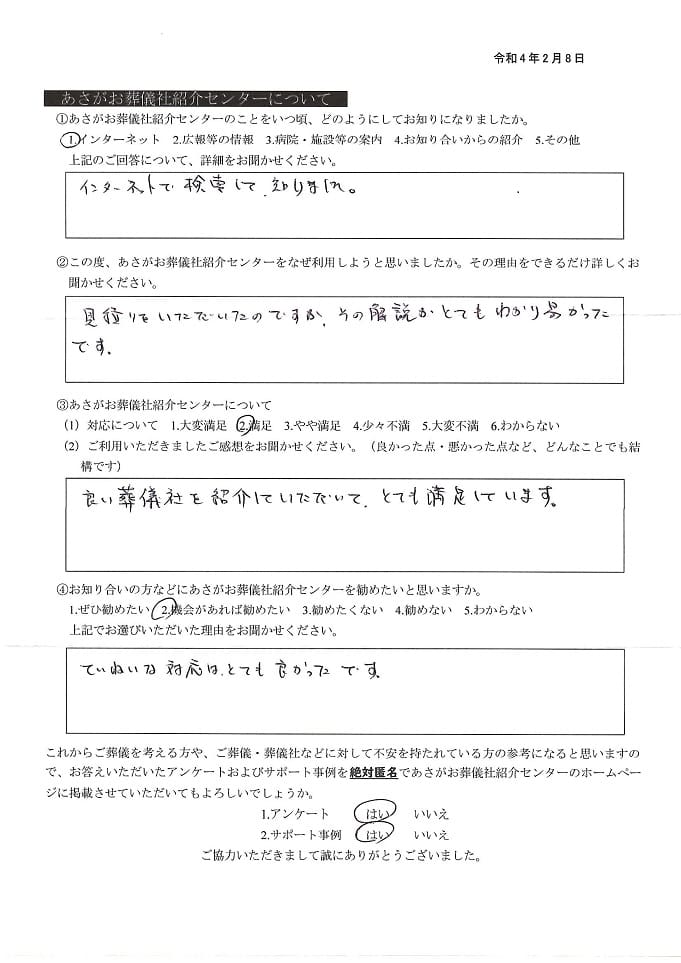 令和4年2月8日
あさがお葬儀社紹介センターについて
①あさがお葬儀社紹介センターのことをいつ頃、どのようにしてお知りになりましたか。
1.インターネット 2.広報等の情報 3.病院・施設等の案内 4.お知り合いからの紹介 5.その他
上記のご回答について、詳細をお聞かせください。
インターネットで検索して、知りました。
②この度、あさがお葬儀社紹介センターをなぜ利用しようと思いましたか。その理由をできるだけ詳しくお
聞かせください。
見積りをいただいたのですが、その解説がとてもわかり易かった
です.
③あさがお葬儀社紹介センターについて
(1) 対応について 1.大変満足 2.満足 3.やや満足 4.少々不満 5.大変不満 6.わからない
(2) ご利用いただきましたご感想をお聞かせください。（良かった点・悪かった点など、どんなことでも結
構です）
良い葬儀社を紹介していただいて、とても満足しています。
④お知り合いの方などにあさがお葬儀社紹介センターを勧めたいと思いますか。
1.ぜひ勧めたい 2.機会があれば勧めたい 3.勧めたくない 4.勧めない 5.わからない
上記でお選びいただいた理由をお聞かせください。
ていねいな対応は、とても良かったです。
これからご葬儀を考える方や、ご葬儀・葬儀社などに対して不安を持たれている方の参考になると思いますの
で、お答えいただいたアンケートおよびサポート事例を絶対匿名であさがお葬儀社紹介センターのホームペー
ジに掲載させていただいてもよろしいでしょうか。
1.アンケート はい いいえ
2.サポート事例 はい いいえ
ご協力いただきまして誠にありがとうございました。